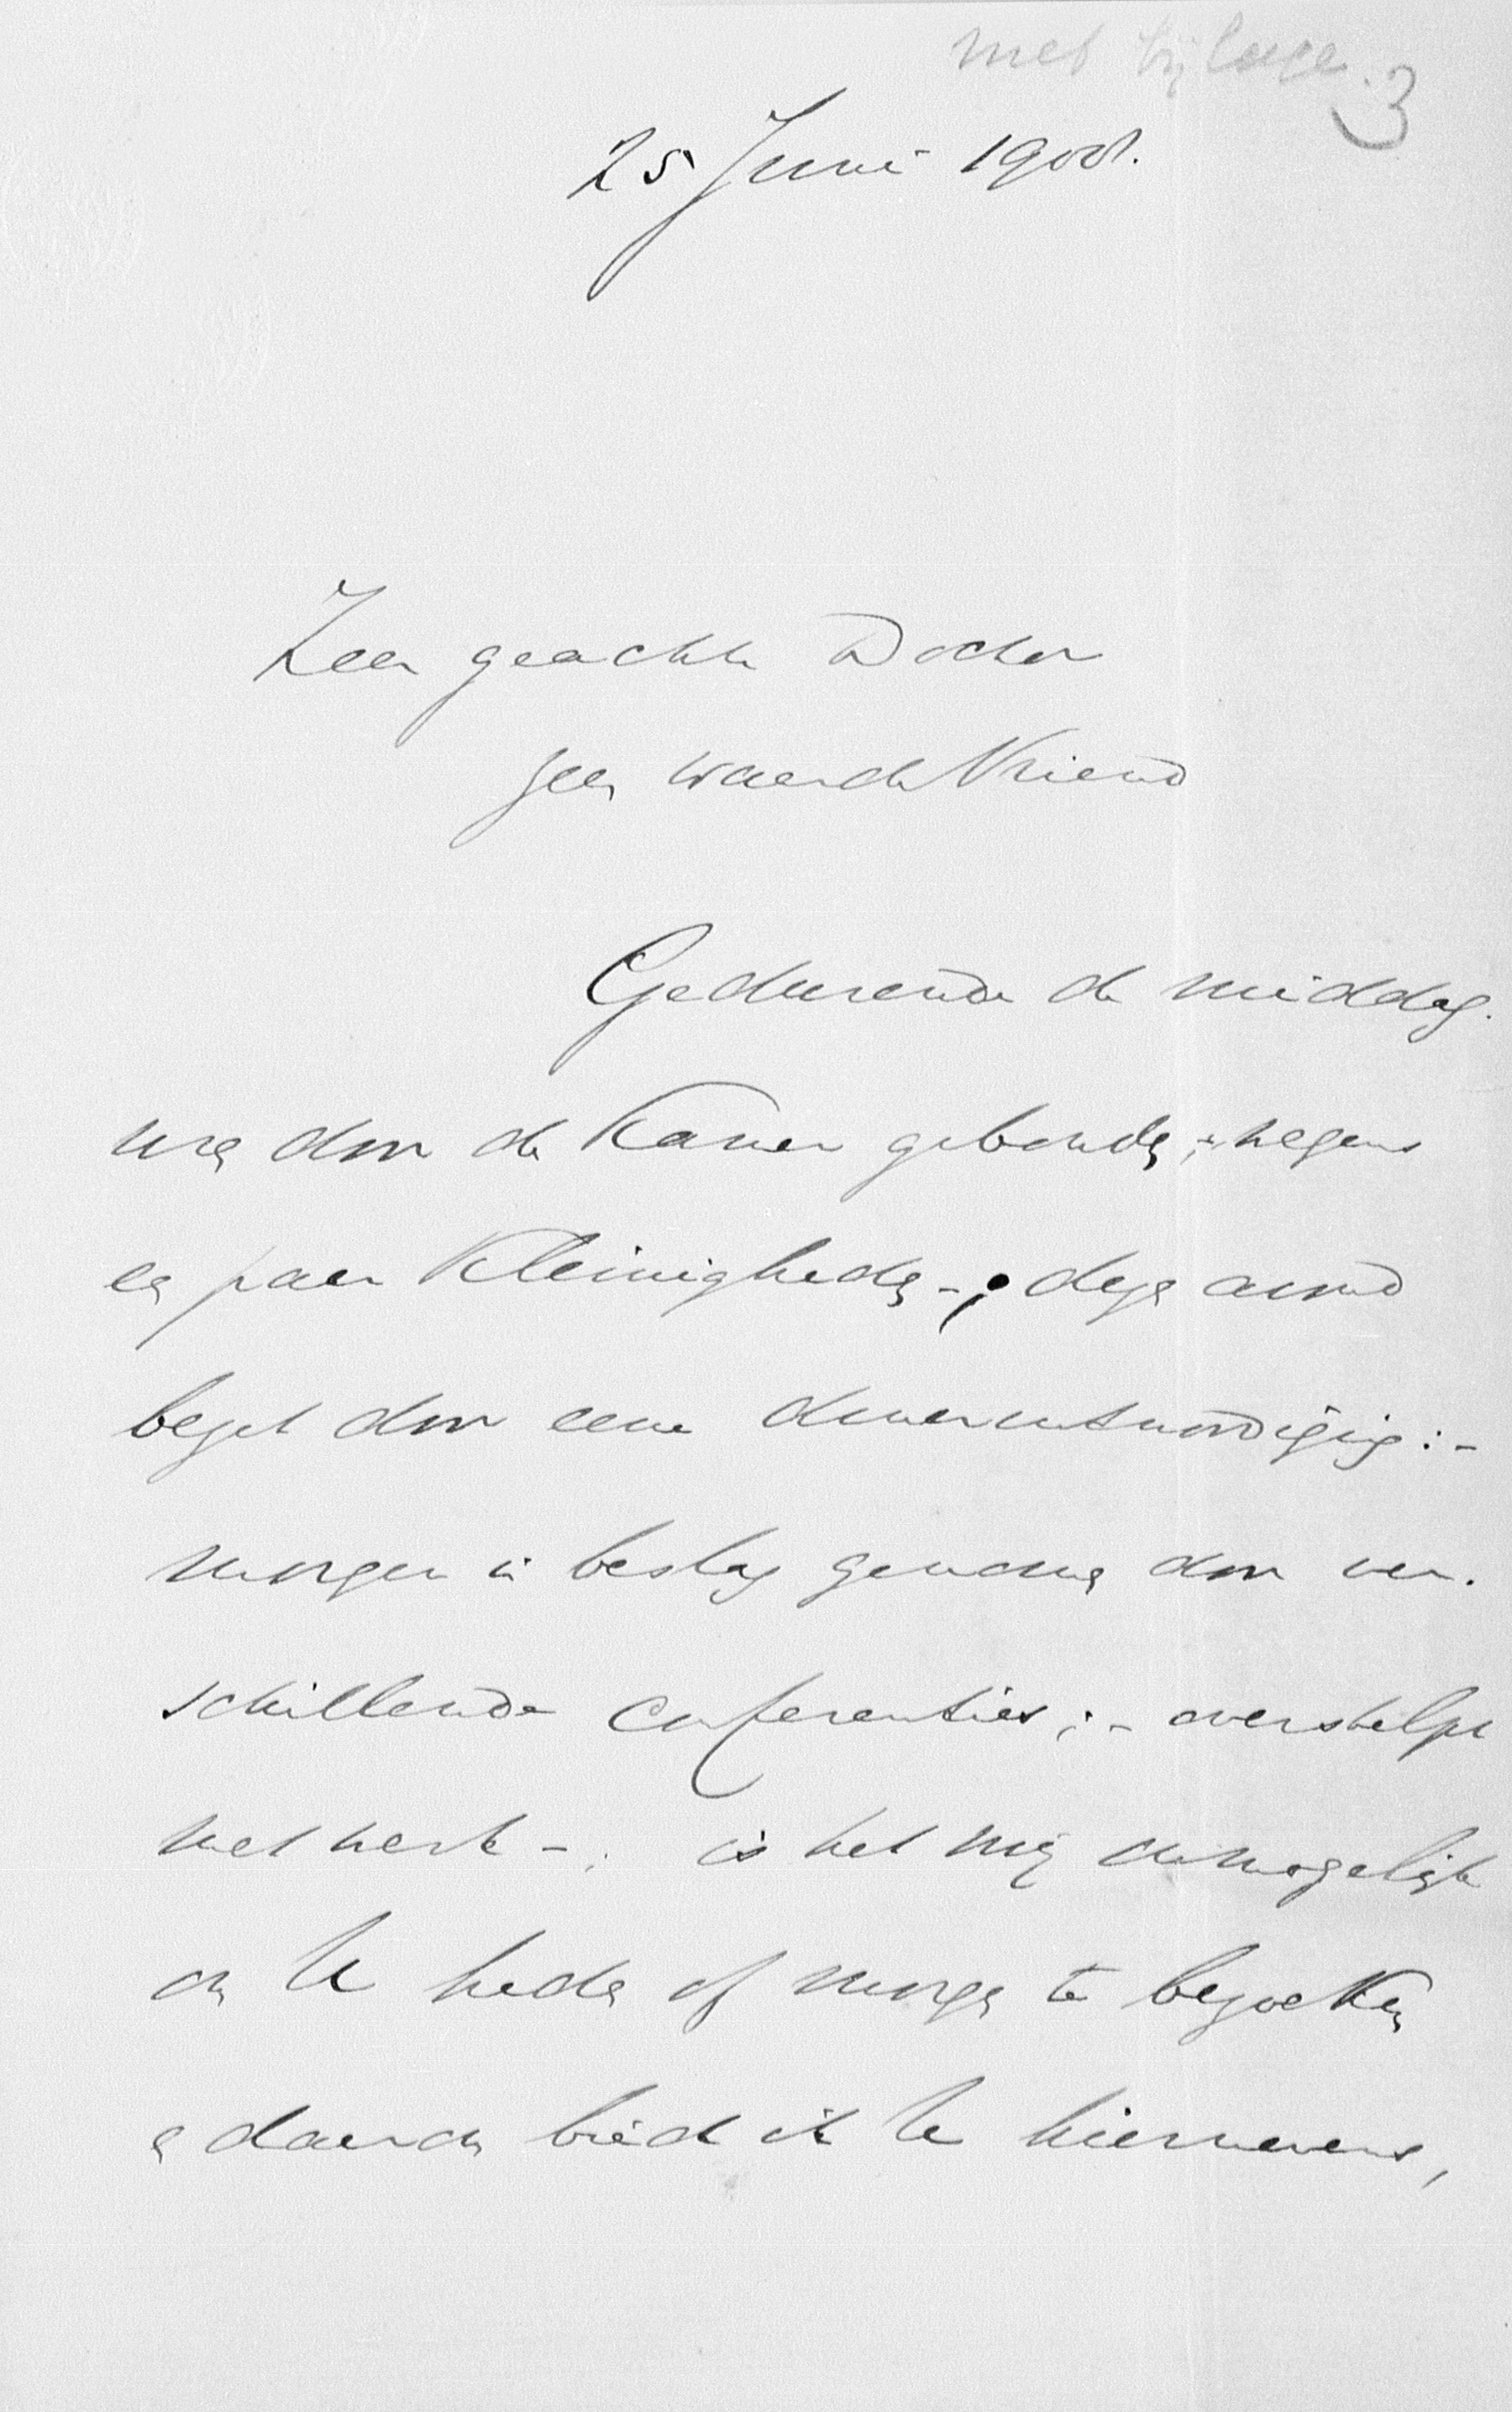 met bijlage.
3
25 Juni 1901.
Zeer geachte Doctor
zeer waarde Vriend
Gedurende de middag-
uren door de Kamer gebonden; wegens
een paar Kleinigheden -; deze avond
bezet door eene :-
morgen in beslag genomen door ver-
schillende conferenties; - overstelpt
met werk - ; is het mij onmogelijk
om U heden of morgen te bezoeken
en daarom bied ik U hiernevens,